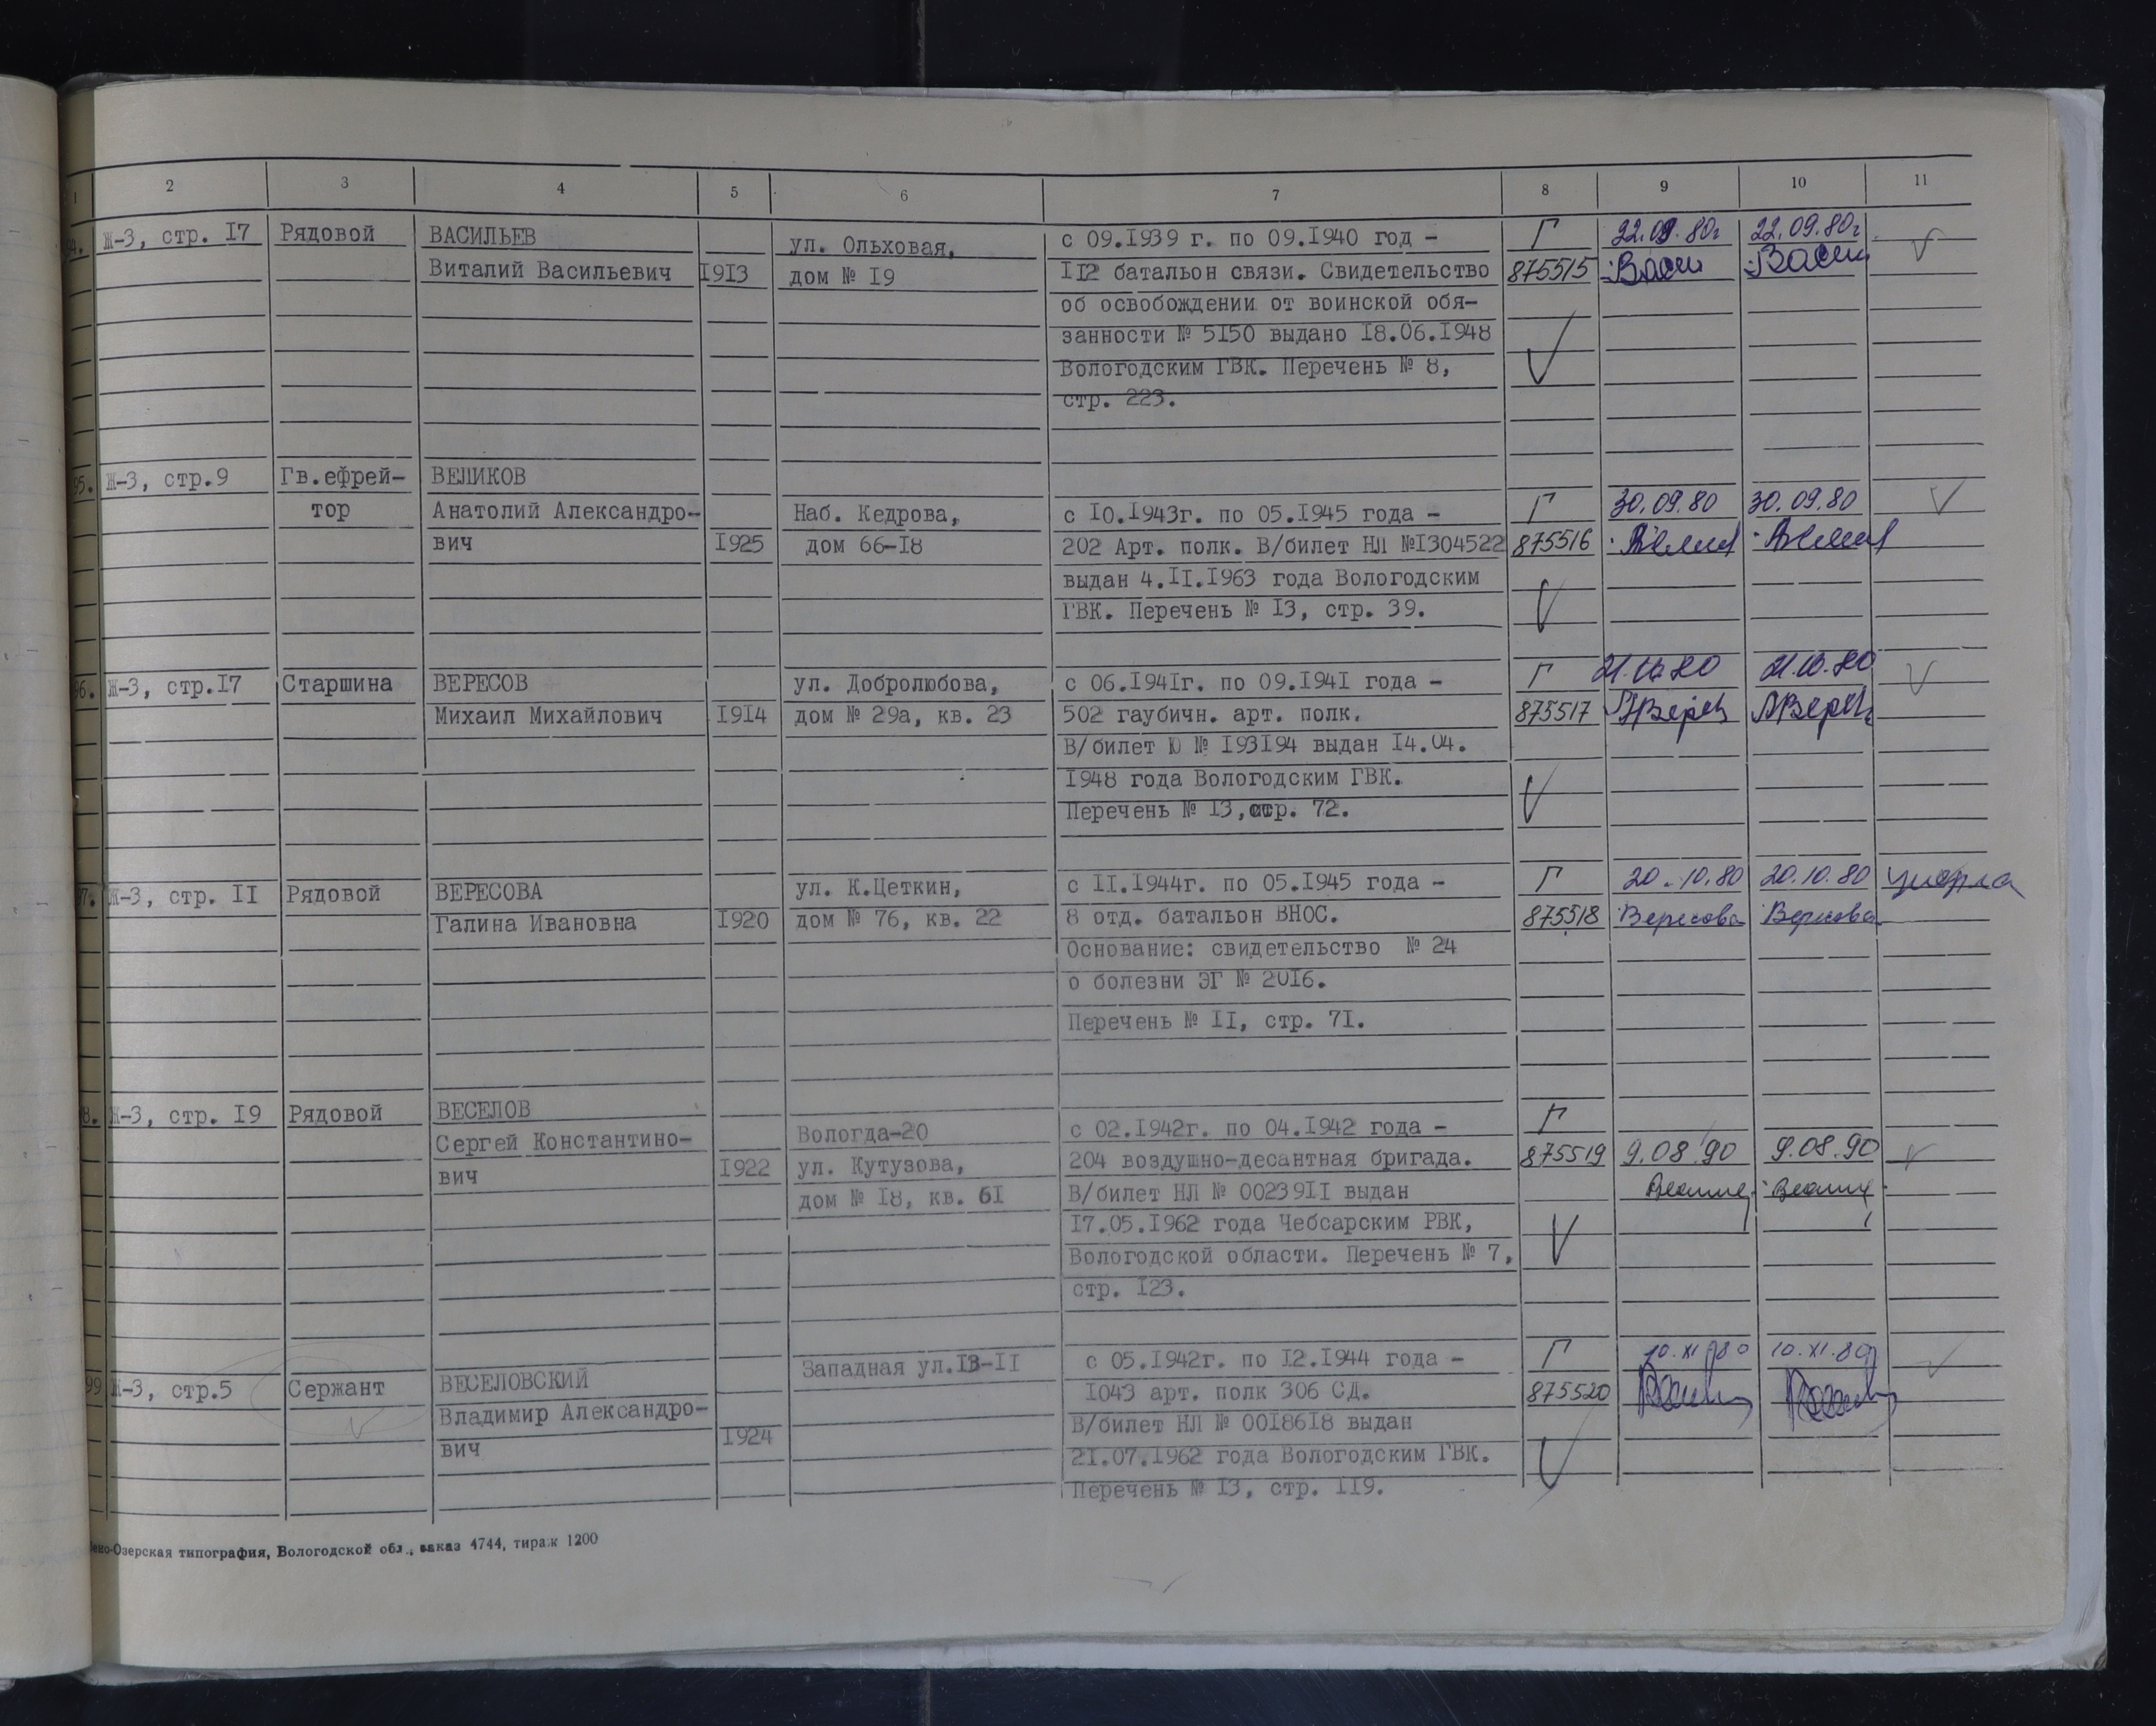 1 2 3 4 5 6 7 8 9 10 11
94. Ж-3, стр. I7 Рядовой ВАСИЛЬЕВ ул. Ольховая, с 09.I939 г. по 09.I940 год - Г 22.09.80г 22.09.80г
Виталий Васильевич I9I3 дом № I9 II2 батальон связи. Свидетельство 875515 Васи Васи
об освобождении от воинской обя-
занности № 5I50 выдано I8.06.I948
Вологодским ГВК. Перечень № 8,
стр. 223.
95. Ж-3, стр.9 Гв.ефрей- ВЕЛИКОВ
тор Анатолий Александро- Наб. Кедрова, с I0.I943г. по 05.I945 года - Г 30.09.80 30.09.80
вич I925 дом 66-I8 202 Арт. полк. В/билет НЛ №I304522 875516
выдан 4.II.I963 года Вологодским
ГВК. Перечень № I3, стр. 39.
96. Ж-3, стр.I7 Старшина ВЕРЕСОВ ул. Добролюбова, с 06.I94Iг. по 09.I94I года - Г 21.10.80 21.10.80
Михаил Михайлович I9I4 дом № 29а, кв. 23 502 гаубичн. арт. полк. 875517
В/билет Ю № I93I94 выдан I4.04.
I948 года Вологодским ГВК.
Перечень № I3,стр. 72.
97. Ж-3, стр. II Рядовой ВЕРЕСОВА ул. К.Цеткин, с II.I944г. по 05.I945 года - Г 20.10.80 20.10.80 умерла
Галина Ивановна I920 дом № 76, кв. 22 8 отд. батальон ВНОС. 875518 Вересова Вересова
Основание: свидетельство № 24
о болезни ЭГ № 20I6.
Перечень № II, стр. 7I.
98. Ж-3, стр. I9 Рядовой ВЕСЕЛОВ Г
Сергей Константино- Вологда-20 с 02.I942г. по 04.I942 года -
вич I922 ул. Кутузова, 204 воздушно-десантная бригада. 875519 9.08.90 9.08.90
дом № I8, кв. 6I В/билет НЛ № 00239II выдан
I7.05.I962 года Чебсарским РВК,
Вологодской области. Перечень № 7,
стр. I23.
99 Ж-3, стр.5 Сержант ВЕСЕЛОВСКИЙ Западная ул.I3-II с 05.I942г. по I2.I944 года - Г 10.XI.80 10.XI.80
Владимир Александро- I043 арт. полк 306 СД. 875520
вич I924 В/билет НЛ № 00I86I8 выдан
2I.07.I962 года Вологодским ГВК.
Перечень № I3, стр. II9.
Озерская типография, Вологодской обл., заказ 4744, тираж 1200